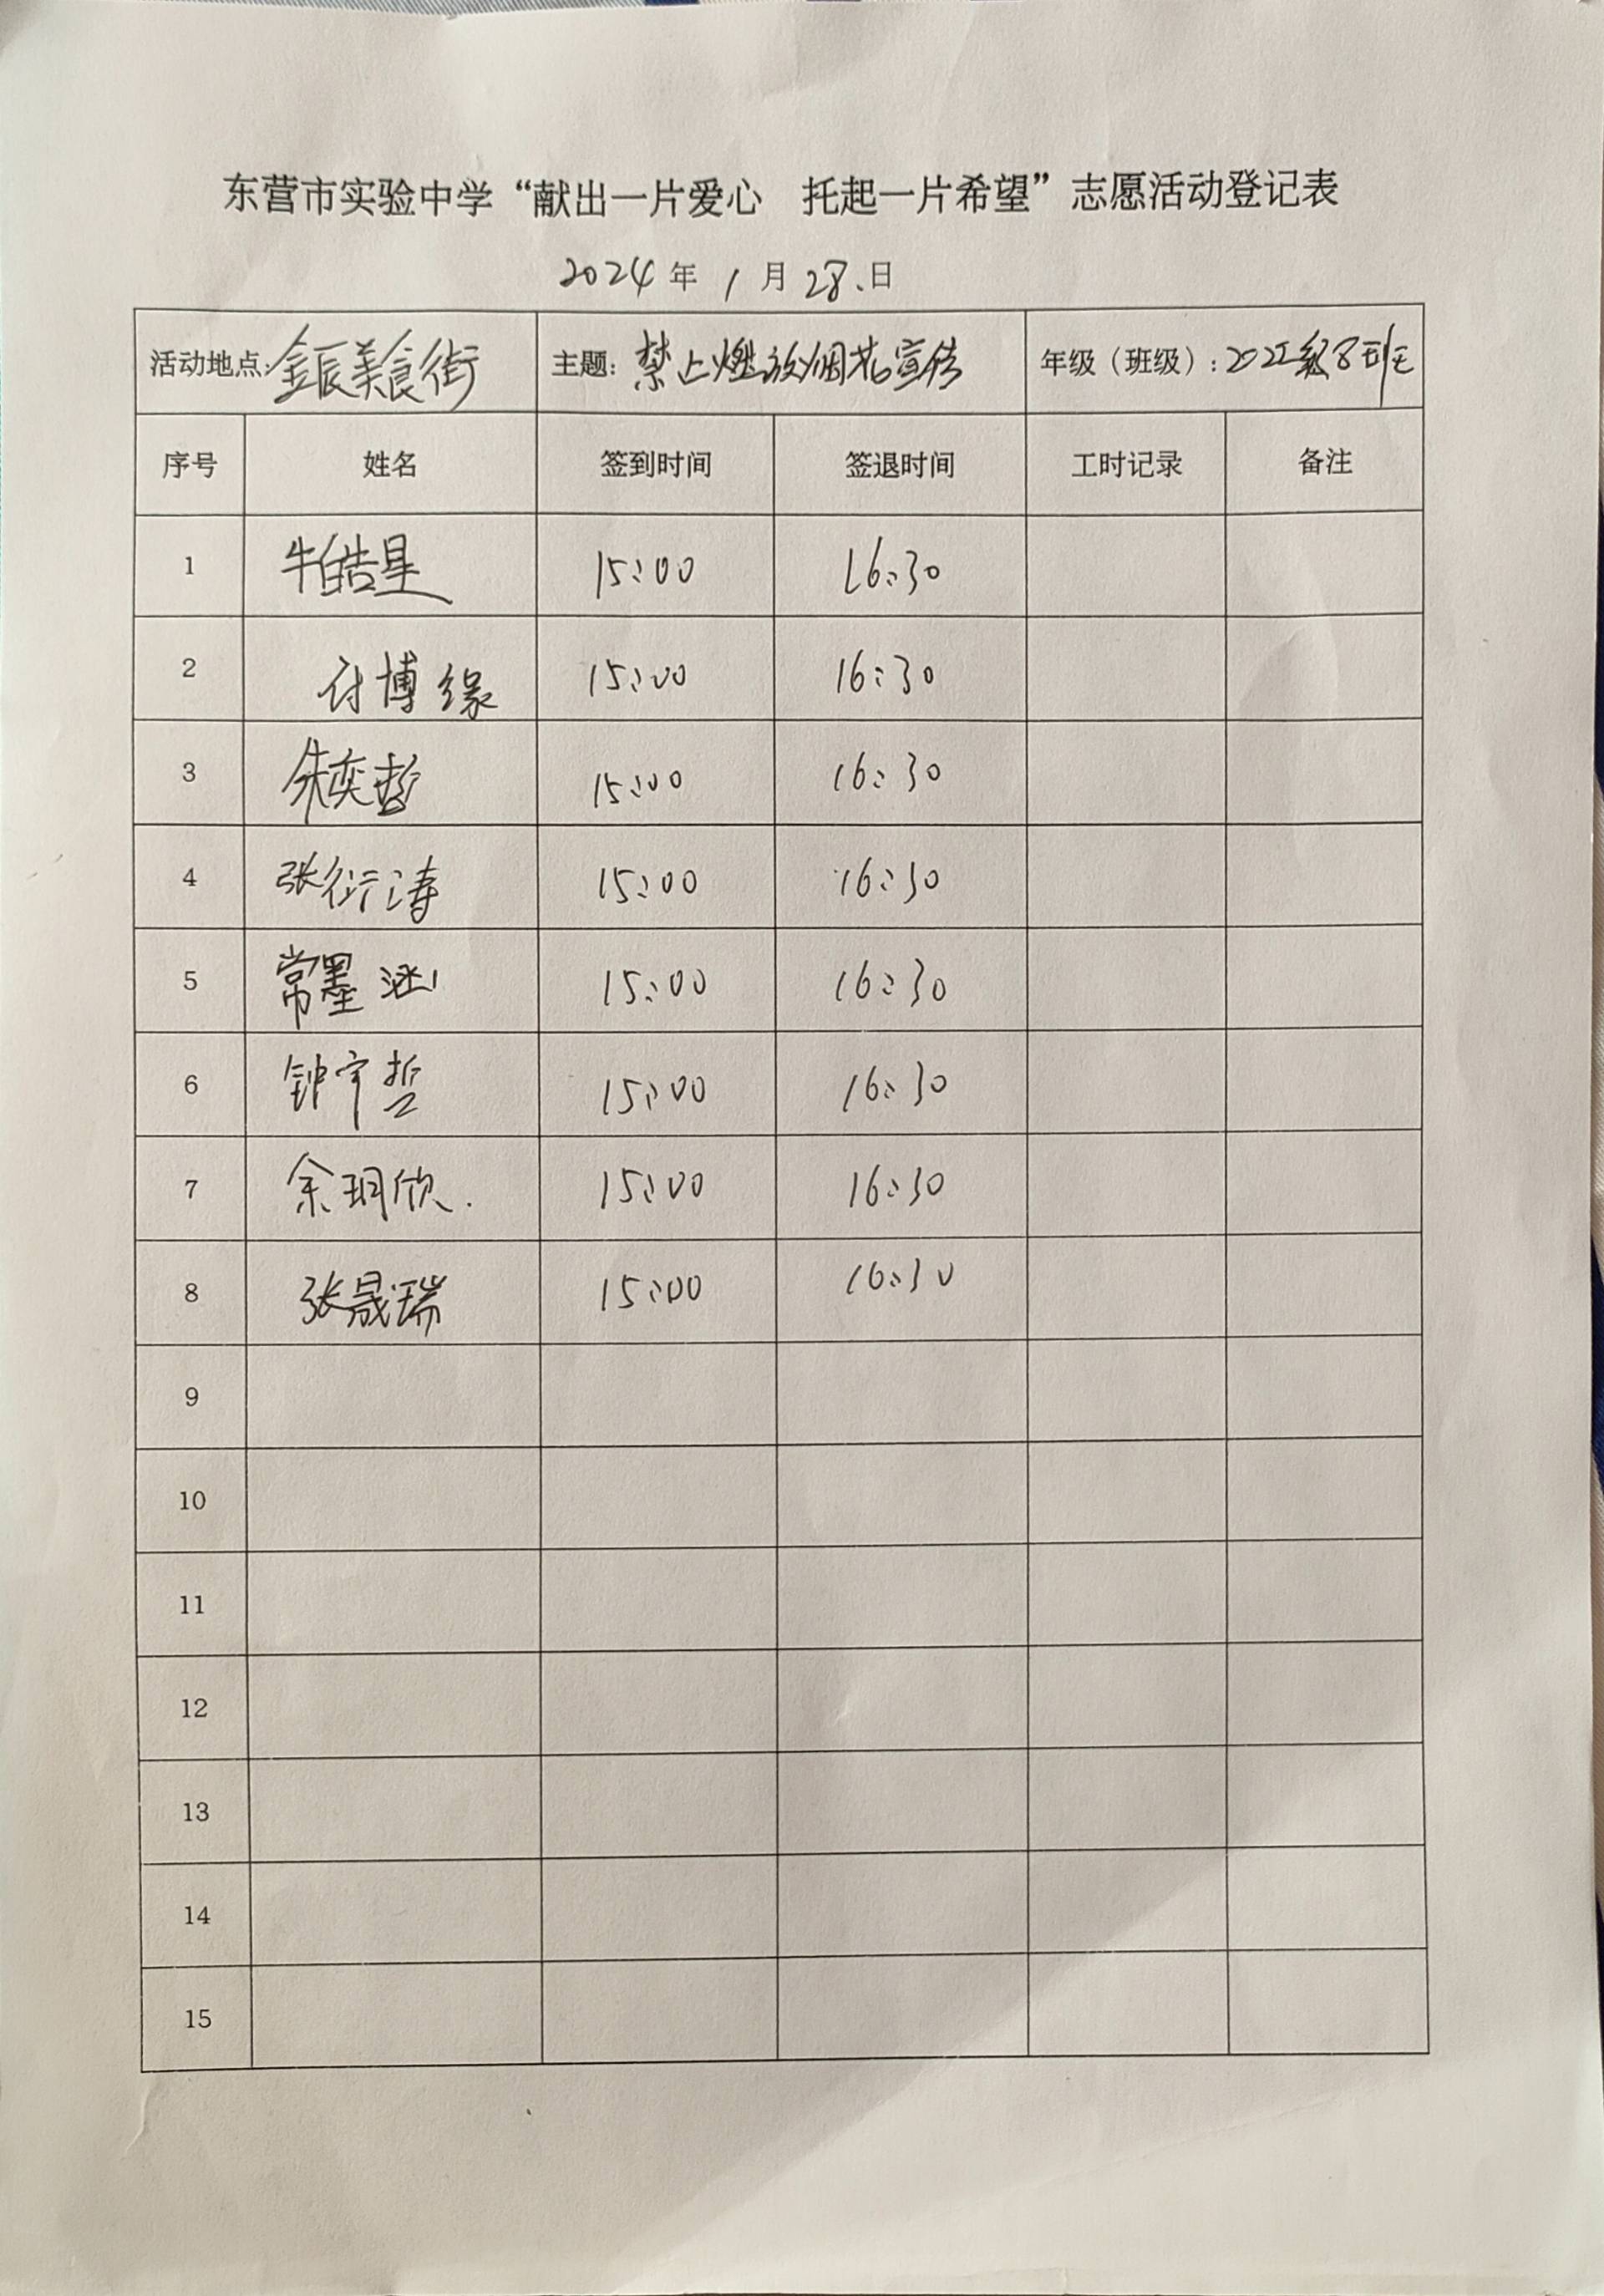 东营市实验中学“献出一片爱心 托起一片希望”志愿活动登记表
2024年1月28日
活动地点:金辰美食街 主题:禁止燃放烟花宣传 年级(班级):2022级8班
序号 姓名 签到时间 签退时间 工时记录 备注
1 牛皓星 15:00 16:30
2 付博缘 15:00 16:30
3 朱奕哲 15:00 16:30
4 张衍涛 15:00 16:30
5 常墨涵 15:00 16:30
6 钟宇哲 15:00 16:30
7 余玥欣 15:00 16:30
8 张晟瑞 15:00 16:30
9
10
11
12
13
14
15